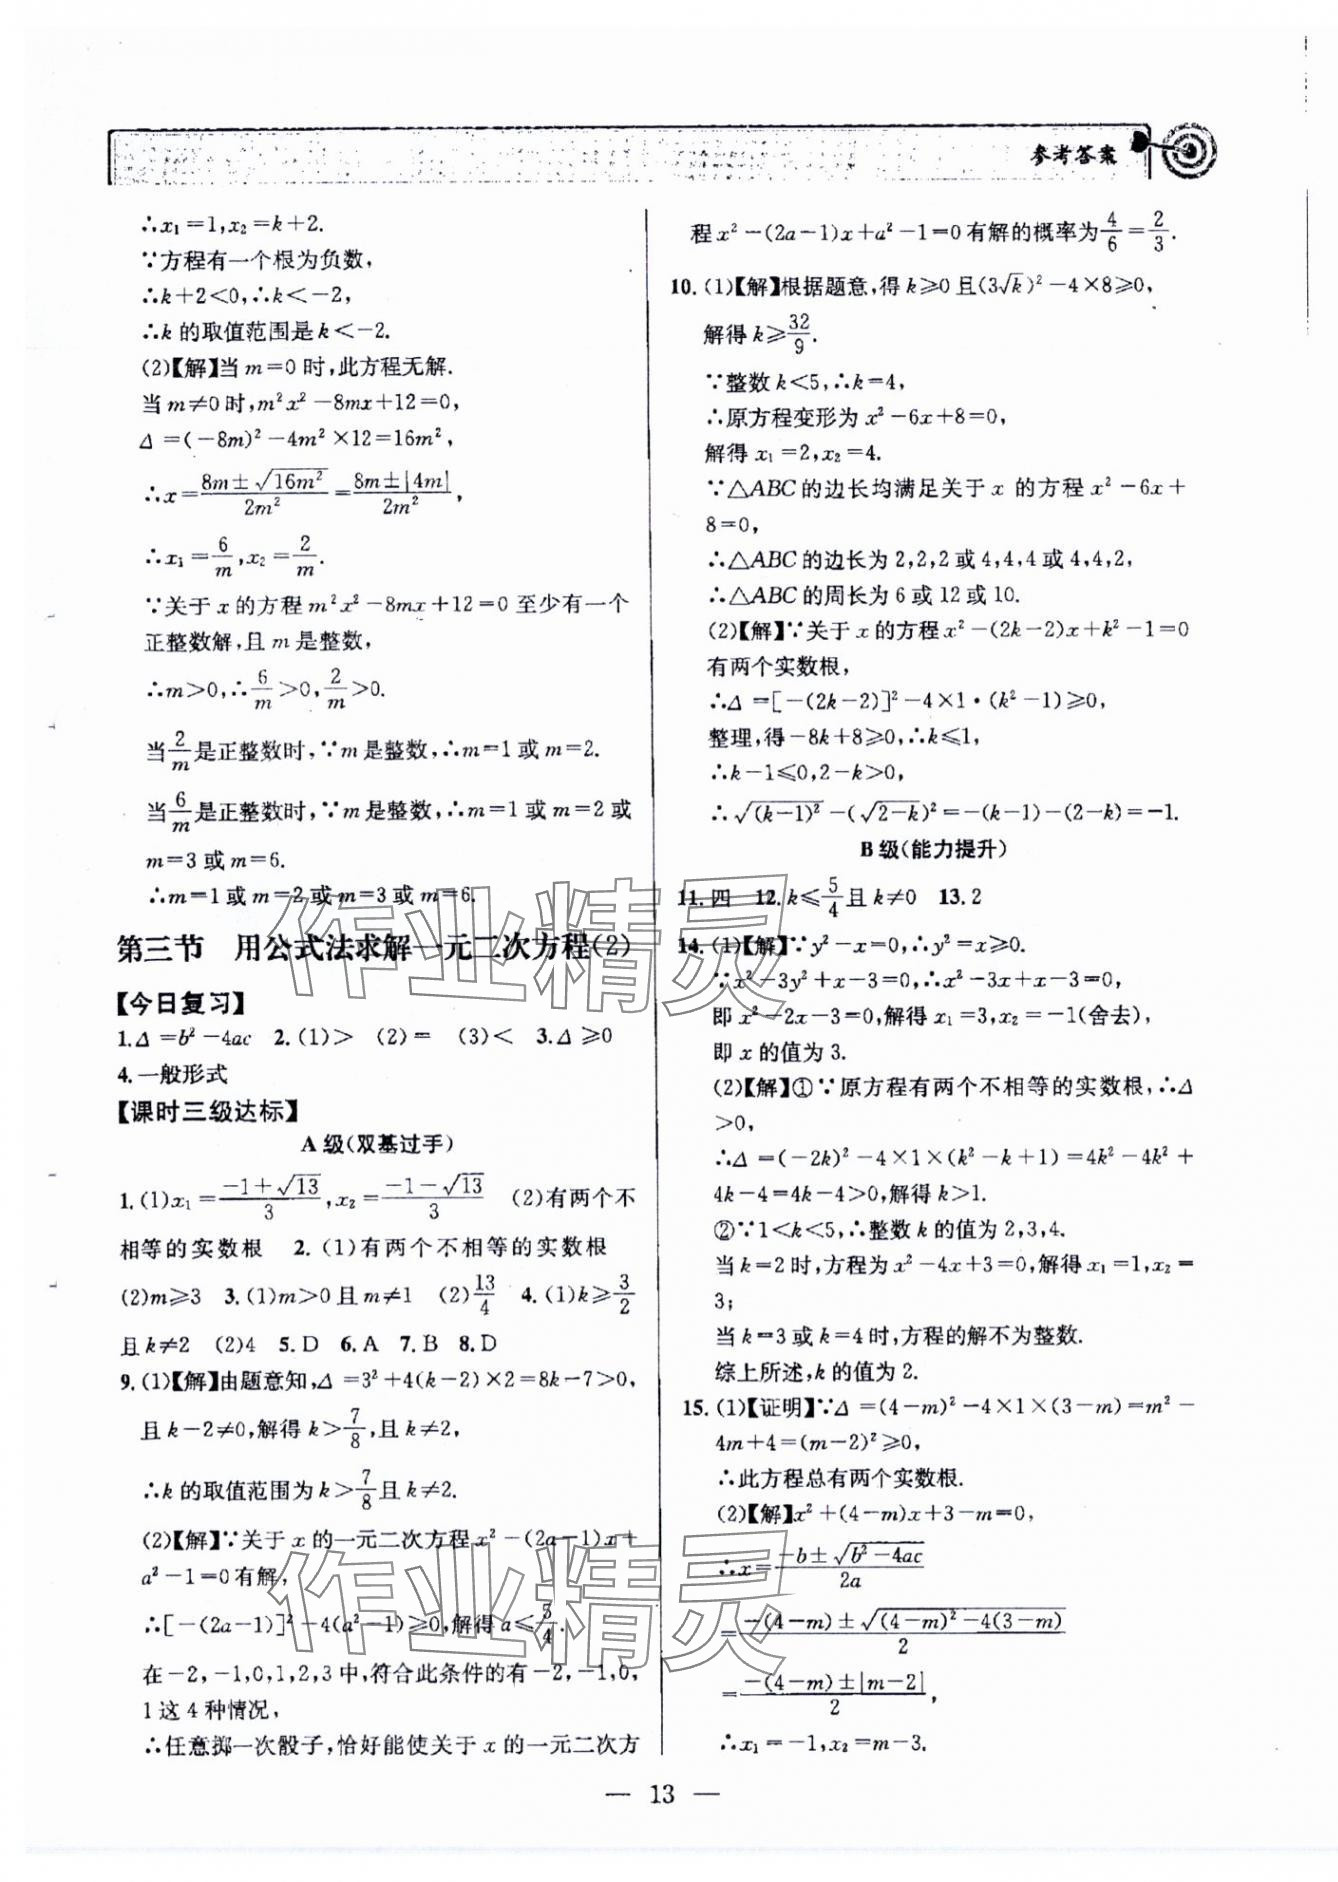 参考答案
∴x₁=1,x₂=k+2.
∵方程有一个根为负数,
∴k+2<0,∴k<-2,
∴k 的取值范围是 k<-2.
(2)【解】当 m=0 时,此方程无解.
当 m≠0 时,m²x²-8mx+12=0,
Δ=(-8m)²-4m²×12=16m²,
∴x=(8m±√(16m²))/(2m²)=(8m±|4m|)/(2m²),
∴x₁=6/m,x₂=2/m.
∵关于 x 的方程 m²x²-8mx+12=0 至少有一个
正整数解,且 m 是整数,
∴m>0,∴6/m>0,2/m>0.
当2/m是正整数时,∵m 是整数,∴m=1 或 m=2.
当6/m是正整数时,∵m 是整数,∴m=1 或 m=2 或
m=3 或 m=6.
∴m=1 或 m=2 或 m=3 或 m=6.
第三节 用公式法求解一元二次方程(2)
【今日复习】
1.Δ=b²-4ac 2.(1)> (2)= (3)< 3.Δ≥0
4.一般形式
【课时三级达标】
A 级(双基过手)
1.(1)x₁=(-1+√13)/3,x₂=(-1-√13)/3 (2)有两个不
相等的实数根 2.(1)有两个不相等的实数根
(2)m≥3 3.(1)m>0 且 m≠1 (2)13/4 4.(1)k≥3/2
且 k≠2 (2)4 5.D 6.A 7.B 8.D
9.(1)【解】由题意知,Δ=3²+4(k-2)×2=8k-7>0,
且 k-2≠0,解得 k>7/8,且 k≠2,
∴k 的取值范围为 k>7/8且 k≠2.
(2)【解】∵关于 x 的一元二次方程 x²-(2a-1)x+
a²-1=0 有解,
∴[-(2a-1)]²-4(a²-1)≥0,解得 a≤5/4.
在-2,-1,0,1,2,3 中,符合此条件的有-2,-1,0,
1 这 4 种情况,
∴任意掷一次骰子,恰好能使关于 x 的一元二次方
程 x²-(2a-1)x+a²-1=0 有解的概率为4/6=2/3.
10.(1)【解】根据题意,得 k≥0 且(3√k)²-4×8≥0,
解得 k≥32/9.
∵整数 k<5,∴k=4,
∴原方程变形为 x²-6x+8=0,
解得 x₁=2,x₂=4.
∵△ABC 的边长均满足关于 x 的方程 x²-6x+
8=0,
∴△ABC 的边长为 2,2,2 或 4,4,4 或 4,4,2,
∴△ABC 的周长为 6 或 12 或 10.
(2)【解】∵关于 x 的方程 x²-(2k-2)x+k²-1=0
有两个实数根,
∴Δ=[-(2k-2)]²-4×1·(k²-1)≥0,
整理,得-8k+8≥0,∴k≤1,
∴k-1≤0,2-k>0,
∴√((k-1)²)-(√(2-k))²=-(k-1)-(2-k)=-1.
B 级(能力提升)
11.四 12.k≤5/4且 k≠0 13.2
14.(1)【解】∵y²-x=0,∴y²=x≥0.
∵x²-3y²+x-3=0,∴x²-3x+x-3=0,
即 x²-2x-3=0,解得 x₁=3,x₂=-1(舍去),
即 x 的值为 3.
(2)【解】①∵原方程有两个不相等的实数根,∴Δ
>0,
∴Δ=(-2k)²-4×1×(k²-k+1)=4k²-4k²+
4k-4=4k-4>0,解得 k>1.
②∵1<k<5,∴整数 k 的值为 2,3,4.
当 k=2 时,方程为 x²-4x+3=0,解得 x₁=1,x₂=
3;
当 k=3 或 k=4 时,方程的解不为整数.
综上所述,k 的值为 2.
15.(1)【证明】∵Δ=(4-m)²-4×1×(3-m)=m²-
4m+4=(m-2)²≥0,
∴此方程总有两个实数根.
(2)【解】x²+(4-m)x+3-m=0,
∴x=(-b±√(b²-4ac))/(2a)
=(-(4-m)±√((4-m)²-4(3-m)))/2
=(-(4-m)±|m-2|)/2,
∴x₁=-1,x₂=m-3.
— 13 —
作业精灵
作业精灵